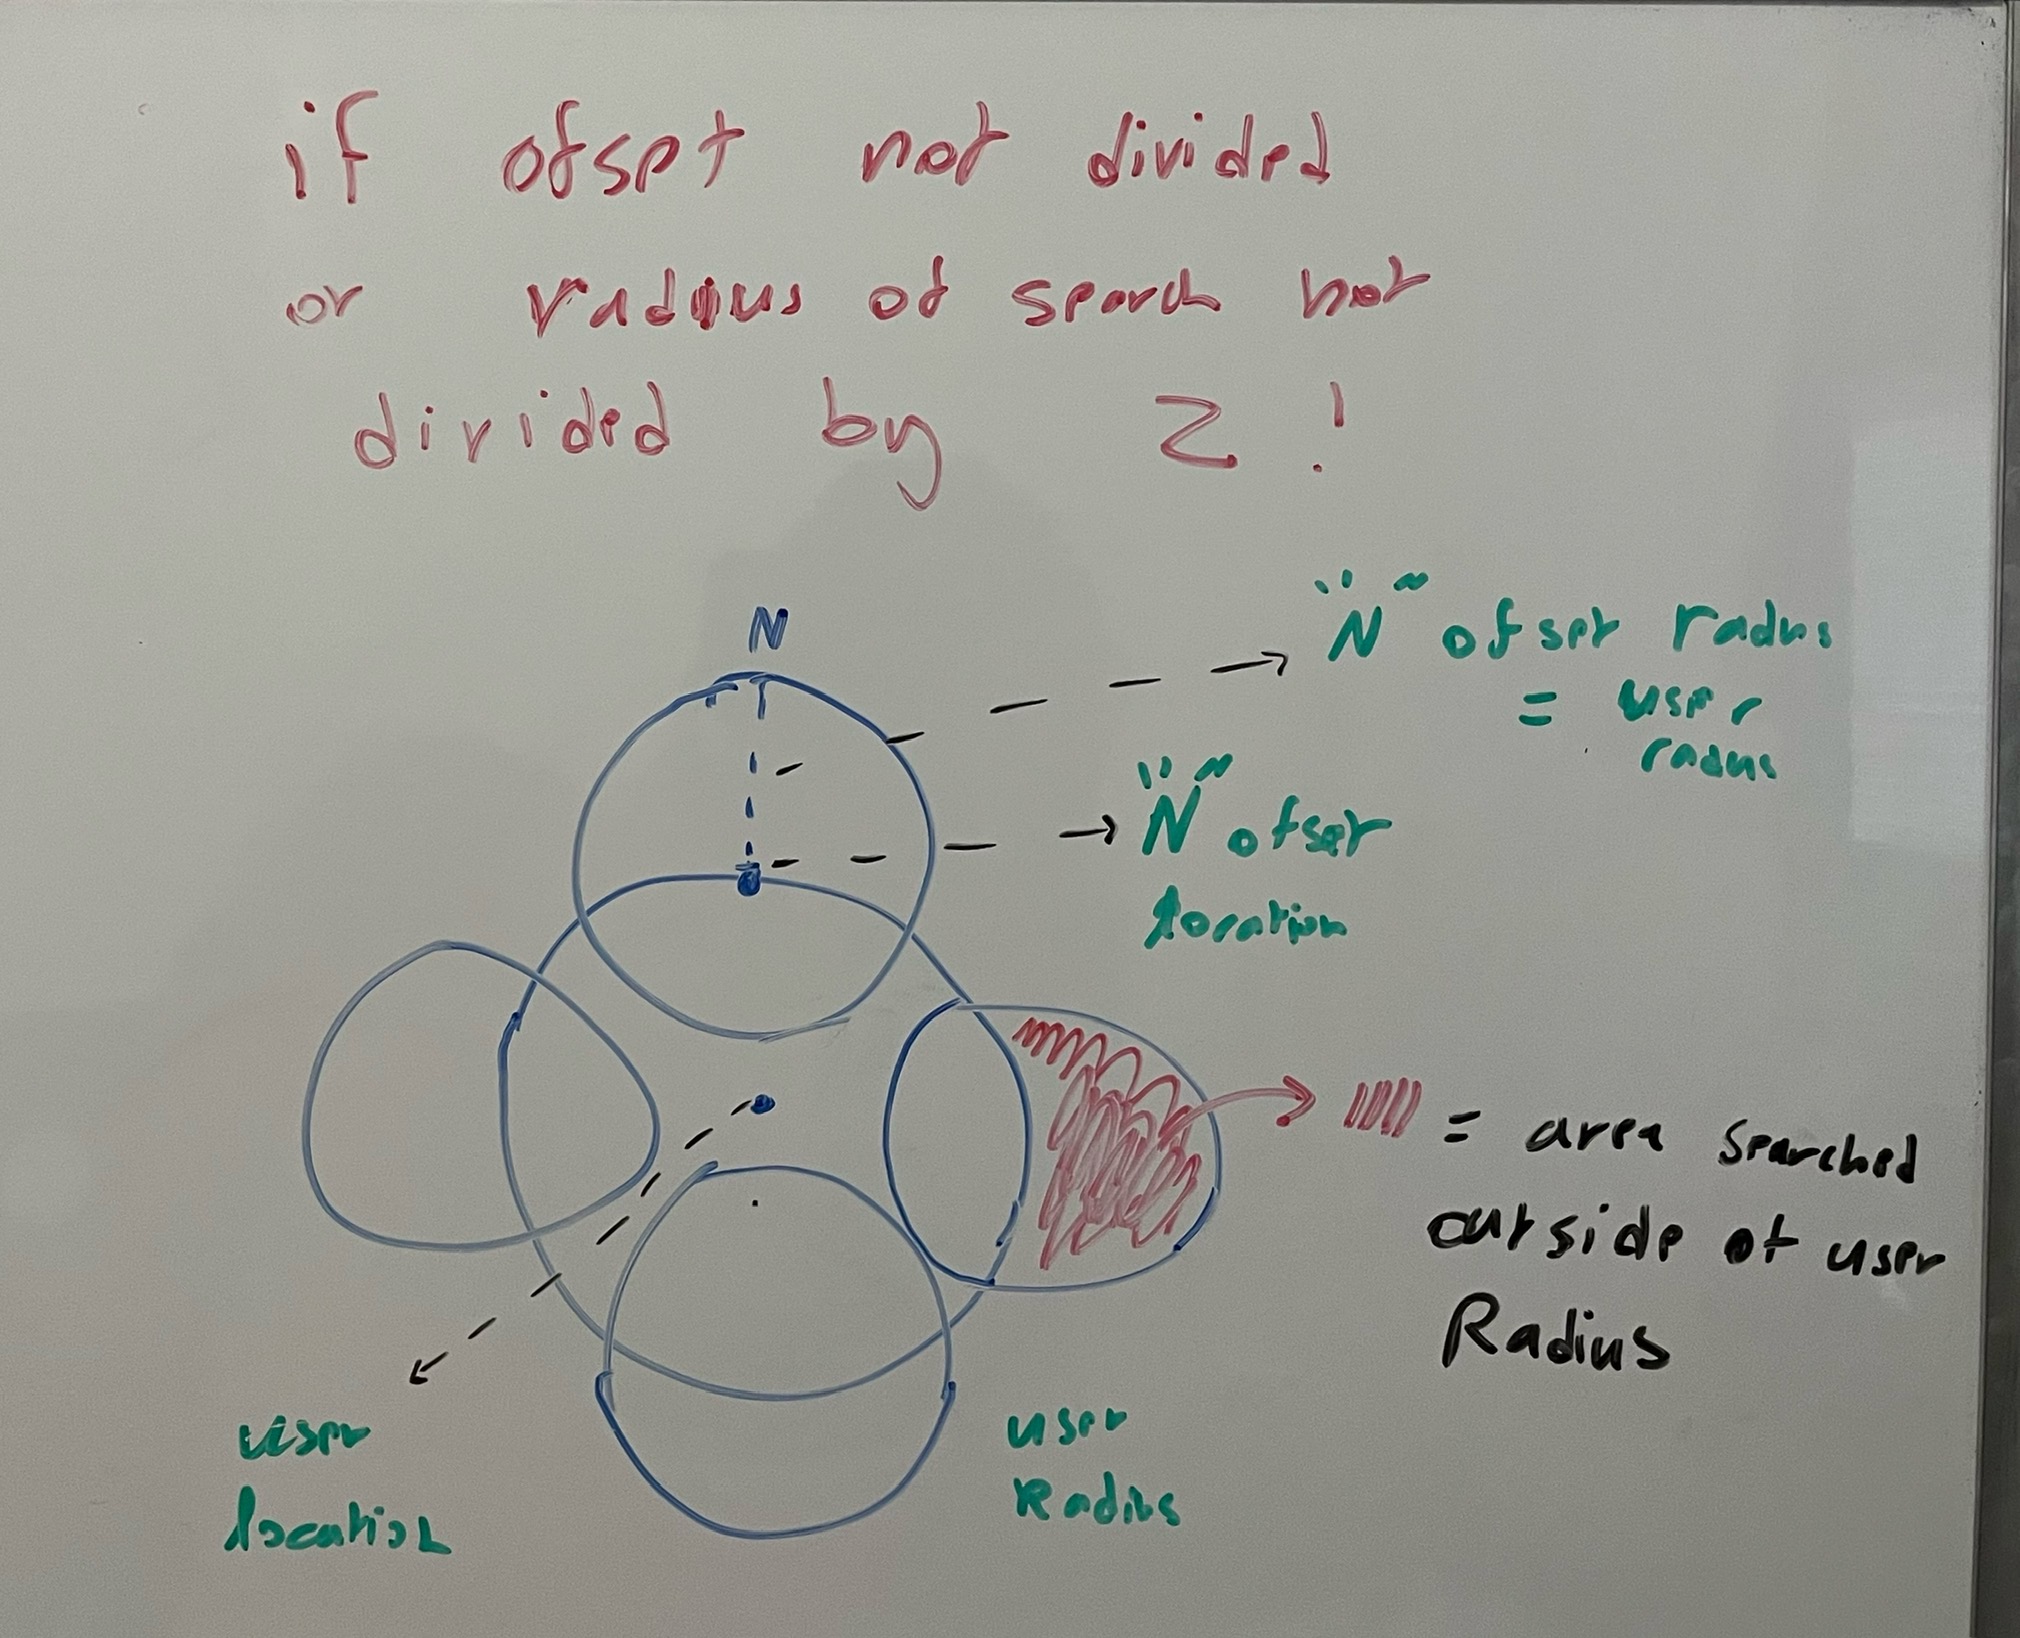 if ofset not divided
or radius of search not
divided by 2!
N
"N" ofset radius
= user
radius
"N" ofset
location
= area searched
outside of user
Radius
user
location
user
Radius